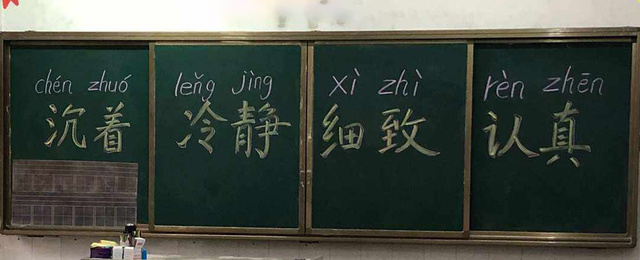 chén zhuó lěng jìng xì zhì rèn zhēn
沉着 冷静 细致 认真